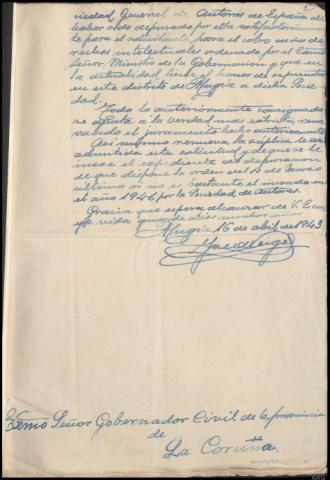 ciedad General de Autores de España de
haber sido depurado por ella satisfactoriamen
te para el
para el cobro de sus de
rechos intelectuales ordenado por el Exmo
Señor Ministro de la Gobernación y que en
la actualidad tiene el honor de representar
en este distrito de Mugia a dicha Socie
dad.
Todo lo anteriormente consignado
se ajusta a la verdad mas estricta, reno
vando el juramento hecho anteriormente
Asi mismo renueva la suplica le sea
admitida esta solicitud y de que se le
incoe el expediente de depuracion
de que dispone la orden del de Marzo
ultimo si no es bastante el incoado en
el año 1941 por la Sociedad de Autores.
Gracia que espera alcanzar de V. Exc
cuya vida guarde Dios muchos años
Mugia 16 de abril de 1943
Exmo Señor Gobernador Civil de la provincia
de
La Coruña.